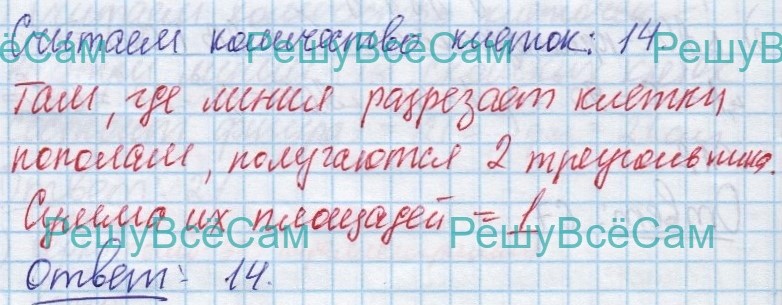 Считаем количество клеток: 14.
РешуВсёСам РешуВсёСам
Там, где линия разрезает клетки
пополам, получаются 2 треугольника.
Сумма их площадей = 1
РешуВсёСам РешуВсёСам
Ответ: 14.